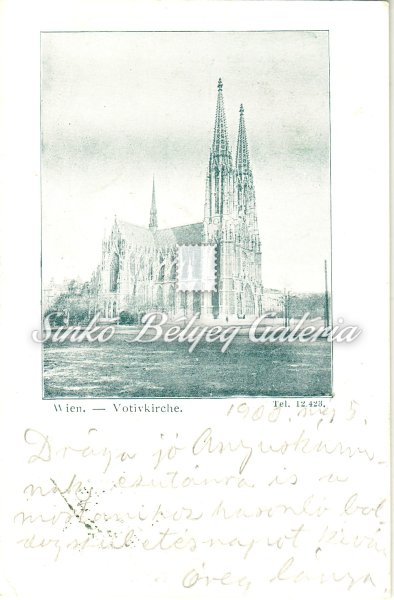 Sinkó Bélyeg Galéria
Wien. — Votivkirche.
Tel. 12.423.
Drága jó Anyuskám
ezutánra is a
hasonló bol
dog születésnapot
öreg lánya